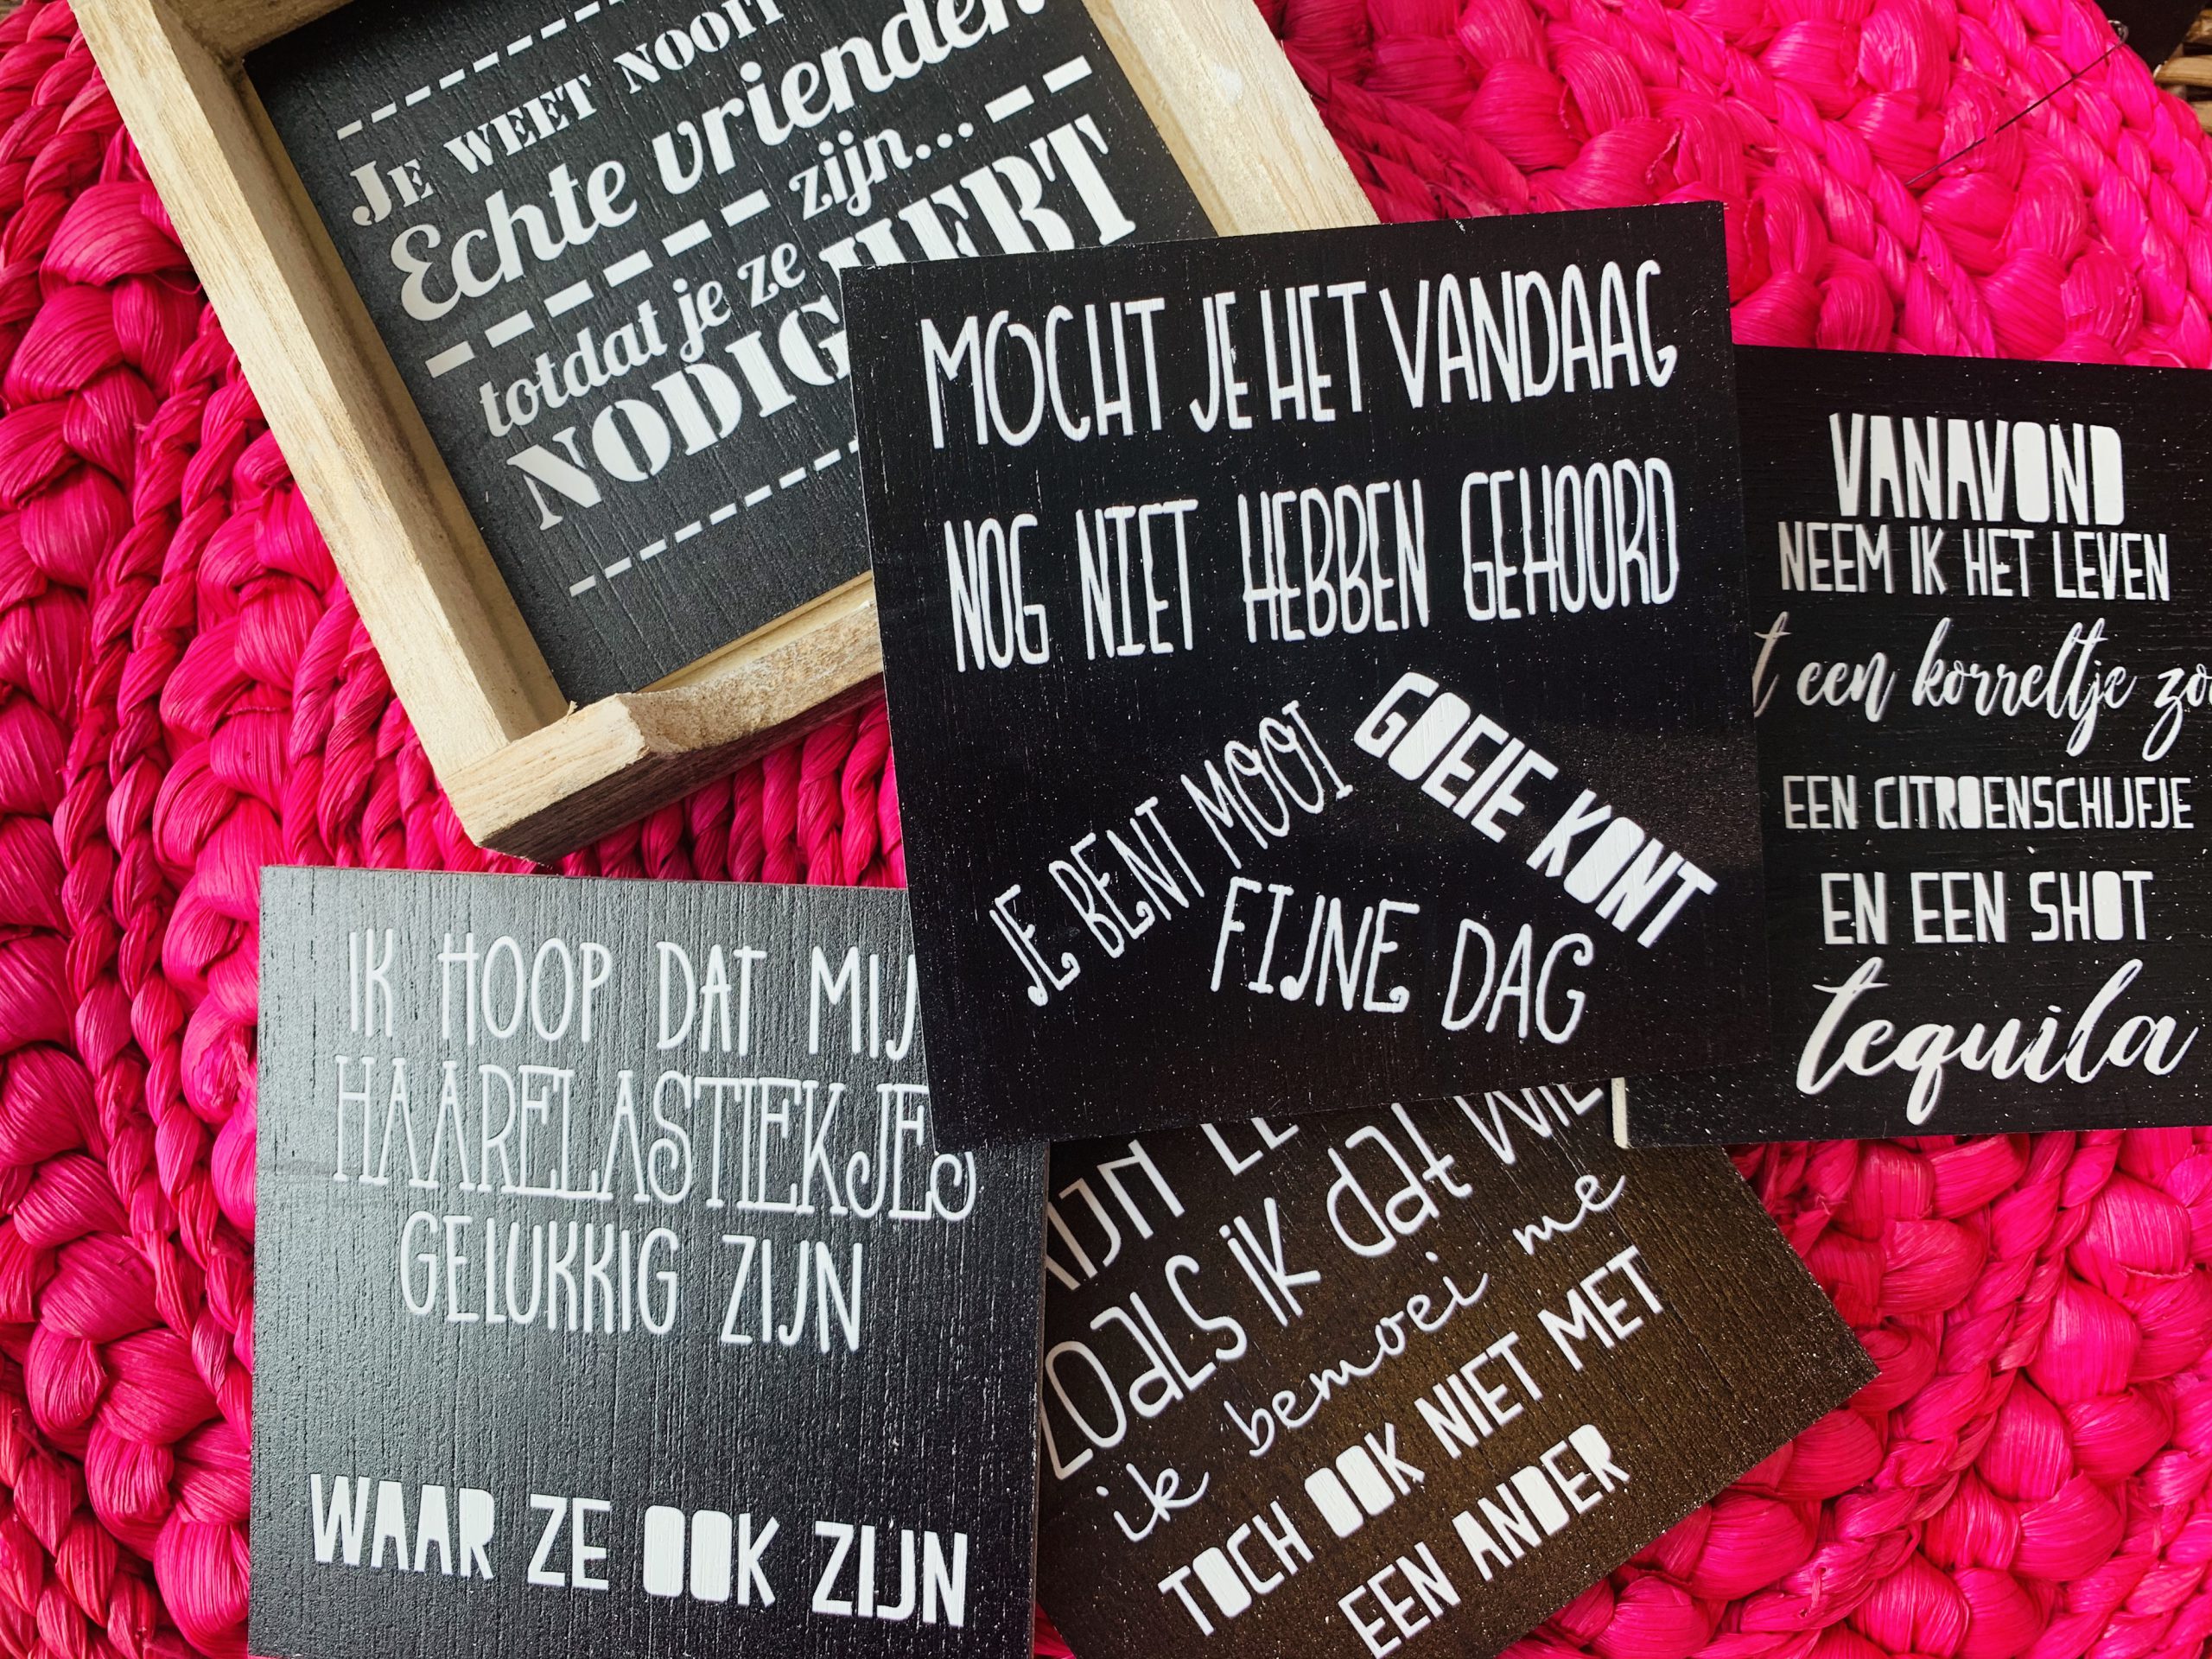 JE WEET NOOIT
Echte vrienden
zijn...
totdat je ze HEBT
NODIG
MOCHT JE HET VANDAAG
NOG NIET HEBBEN GEHOORD
JE BENT MOOI
GOEIE KONT
FIJNE DAG
VANAVOND
NEEM IK HET LEVEN
een korreltje
EEN CITROENSCHIJFJE
EN EEN SHOT
tequila
IK HOOP DAT MIJ
HAARELASTIEKJES
GELUKKIG ZIJN
WAAR ZE OOK ZIJN
ZOALS IK dat WIL
ik bemoei me
TOCH OOK NIET MET
EEN ANDER